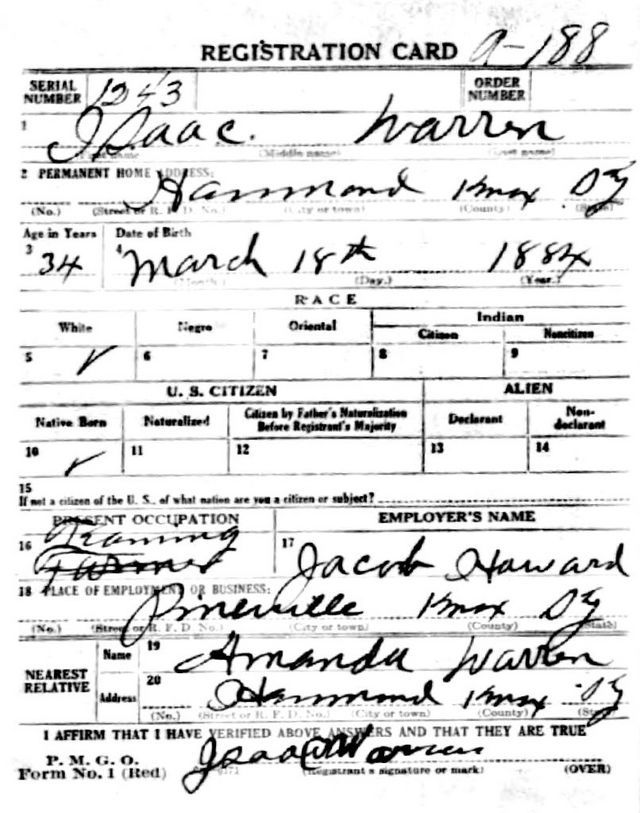 REGISTRATION CARD A-188
SERIAL NUMBER 1243 ORDER NUMBER
1 Isaac. Warren
(First name) (Middle name) (Last name)
2 PERMANENT HOME ADDRESS:
Hammond Knox Ky
(No.) (Street or R. F. D. No.) (City or town) (County) (State)
Age in Years Date of Birth
3 34 4 March 18th 1884
(Month.) (Day.) (Year.)
RACE
White Negro Oriental Indian
Citizen Noncitizen
5 ✓ 6 7 8 9
U. S. CITIZEN ALIEN
Native Born Naturalized Citizen by Father's Naturalization Before Registrant's Majority Declarant Non-declarant
10 ✓ 11 12 13 14
15
If not a citizen of the U. S., of what nation are you a citizen or subject?
PRESENT OCCUPATION EMPLOYER'S NAME
16 Teaming Farmer 17 Jacob Howard
18 PLACE OF EMPLOYMENT OR BUSINESS:
Pineville Knox Ky
(No.) (Street or R. F. D. No.) (City or town) (County) (State)
NEAREST RELATIVE Name 19 Amanda Warren
Address 20 Hammond Knox Ky
(No.) (Street or R. F. D. No.) (City or town) (County) (State)
I AFFIRM THAT I HAVE VERIFIED ABOVE ANSWERS AND THAT THEY ARE TRUE
P. M. G. O.
Form No. 1 (Red) Isaac Warren
(Registrant's signature or mark) (OVER)